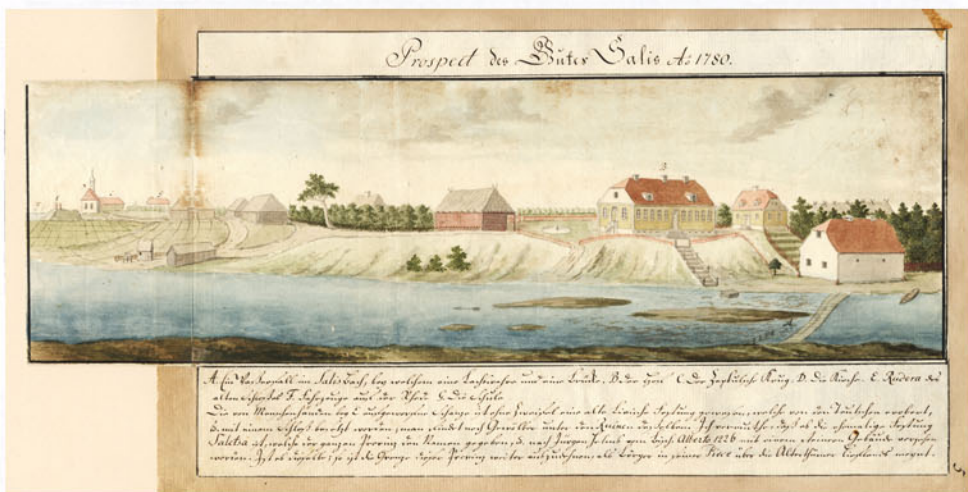 Prospect des Gutes Salis Aº 1780.
A. Ein Wasserfall im Salis Bach, bey welchem eine Lachswehre und eine Brücke, B. der Hof C. Der Krug. D. Die Kirche. E. Rudera des
alten Schlosses F. Fahrzeuge auf der G. Die Schule
Die von Menschenhänden bey E aufgeworfene Schanze ist ohne Zweifel eine alte Livische Festung gewesen, welche von den Teutschen erobert,
& mit einem Schloß besetzt worden; man findet noch Gewölber unter den Ruinen desselben. Ich vermuthe, daß es die ehemalige Festung
Saletsa ist, welche der ganzen Provinz den Namen gegeben, & nach Jürgen Helms vom Bisch. Alberto 1226 mit einem steinern Gebäude versehen
worden. Ist es dieselbe; so ist die Grenze dieser Provinz weiter auszudehnen, als Körper in seiner über die Alterthümer Livlands meynt.